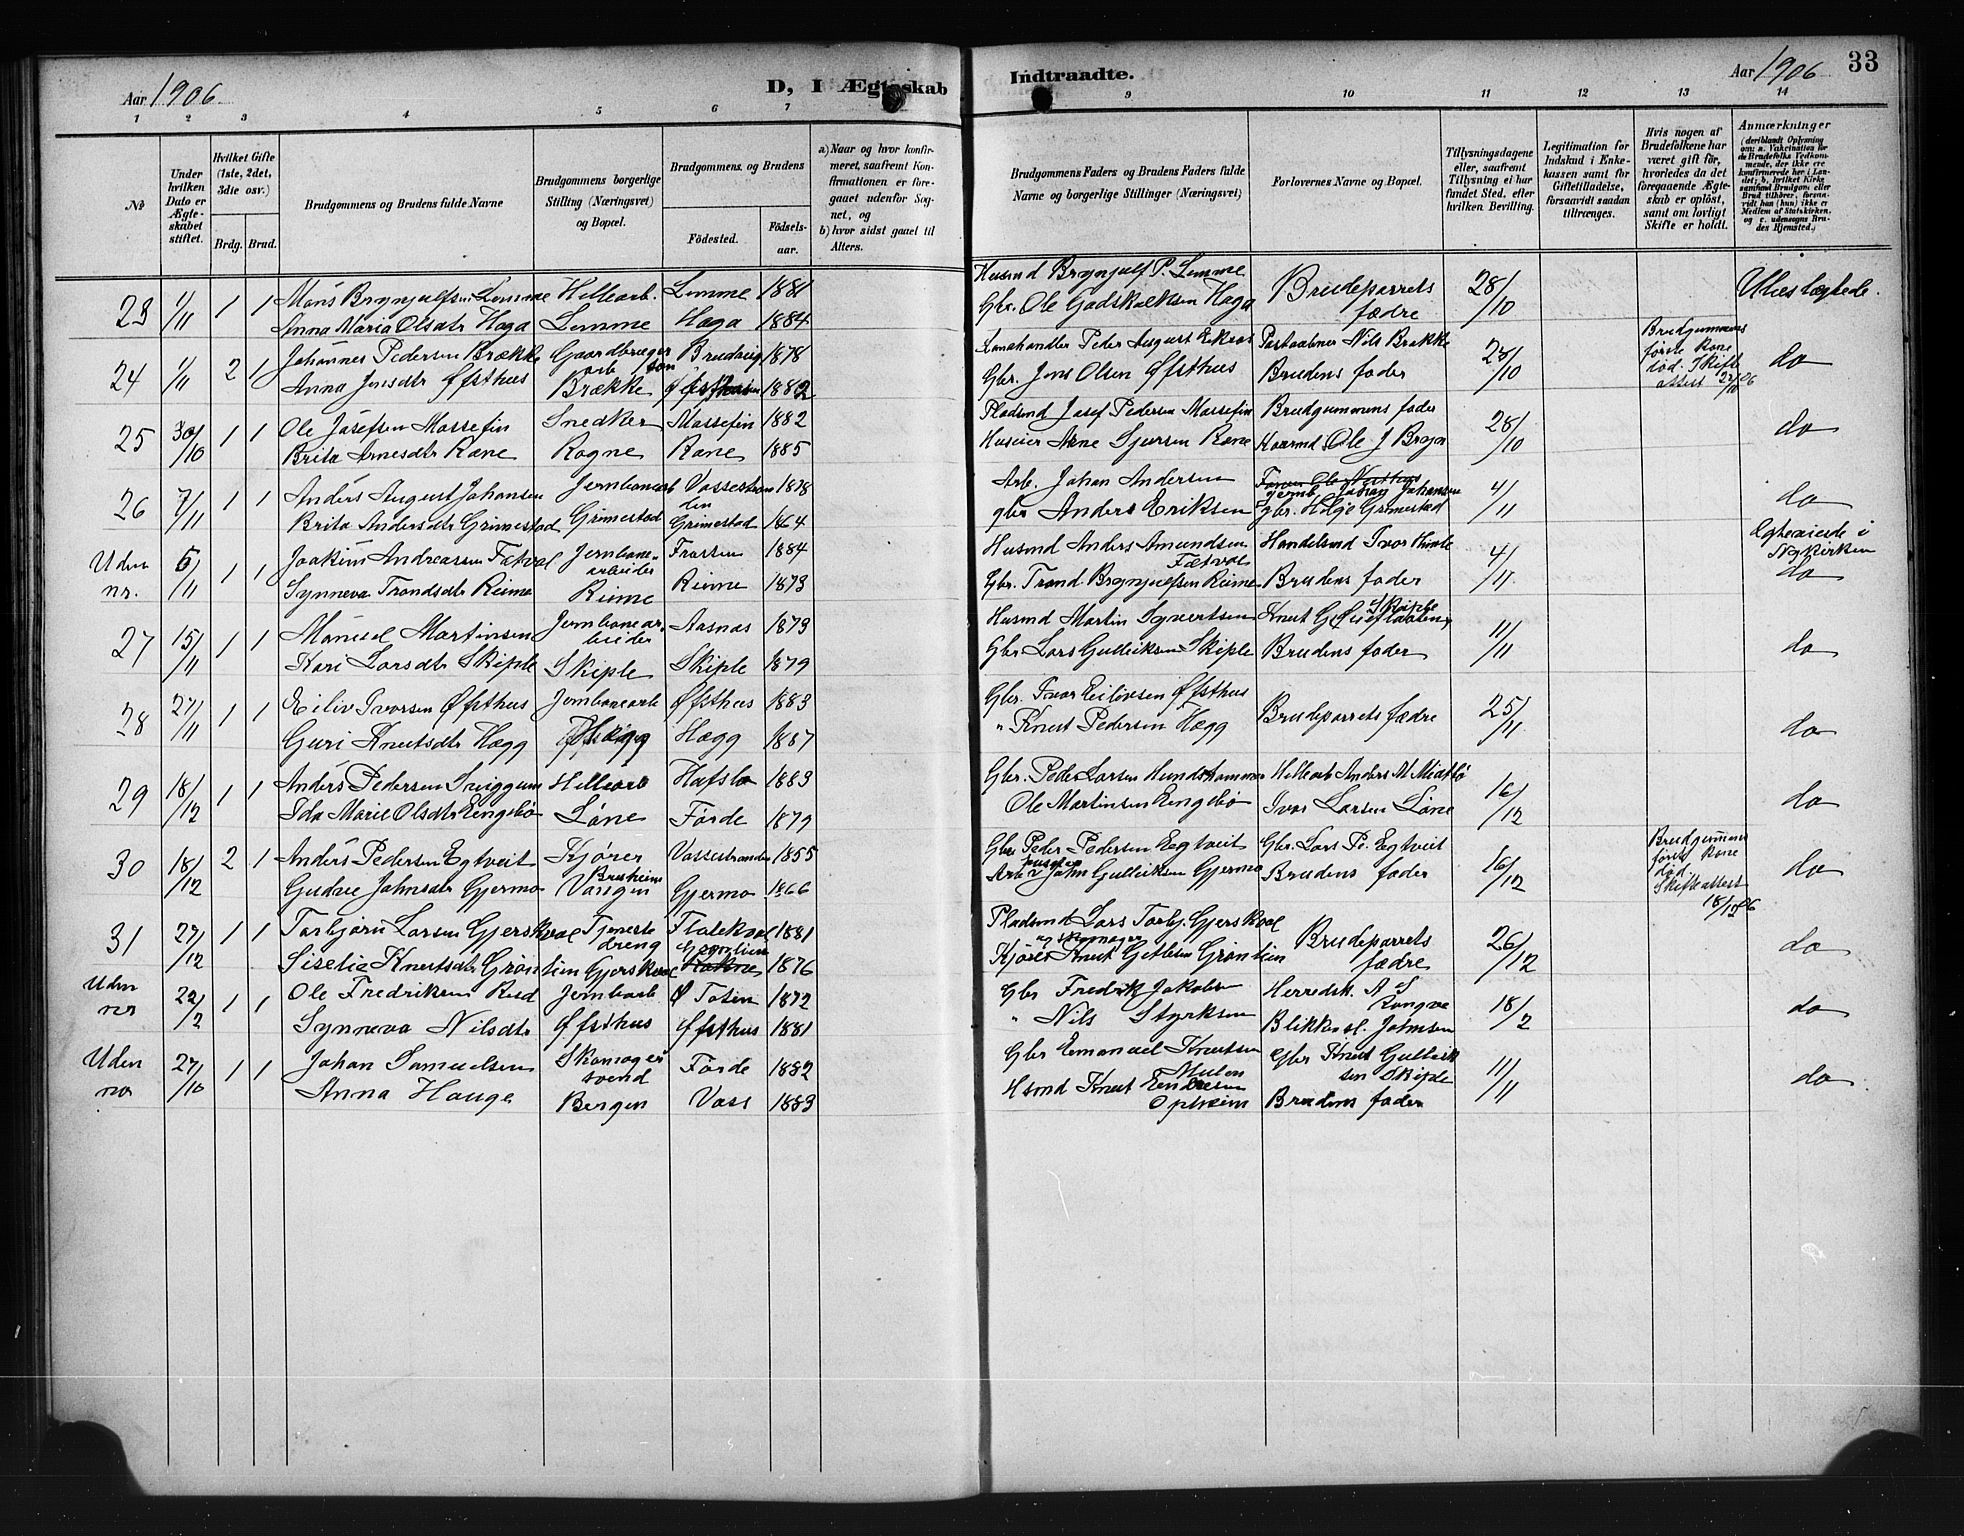 Aar 1906. D, I Ægteskab
1 2 3 4 5 6 7
No
Under hvilken Dato er Ægteskabet stiftet.
Hvilket Gifte (1ste, 2det, 3die osv.)
Brdg. Brud.
Brudgommens og Brudens fulde Navne
Brudgommens borgerlige Stilling (Næringsvei) og Bopæl.
Brudgommens og Brudens
Fødested. Fødselsaar.
a) Naar og hvor konfirmeret, saafremt Konfirmationen er foregaaet udenfor Sognet, og
b) hvor sidst gaaet til Alters.
23 1/11 1 1 Mons Brynjulfsen Lemme Hellearb. Lemme 1881
Anna Maria Olsdtr Haga Lemme Haga 1884
24 1/11 2 1 Johannes Pedersen Brække Gaardbruger Brudvig 1878
Anna Jensdtr Øfsthus Brække Øfsthus 1882
25 30/10 1 1 Ole Josefsen Massefin Snedker Massefin 1882
Brita Arnesdtr Rane Rogne Rane 1885
26 7/11 1 1 Anders August Johansen Jernbanearb Vassestranden 1878
Brita Andersdtr Grimestad Grimestad Grimestad 1864
Uden nr. 5/11 1 1 Joakim Andreassen Fætval Jernbanearbeider 1884
Synneva Trondsdtr Rieme Rieme Rieme 1873
27 15/11 1 1 Manuel Martinsen Jernbanearbeider Aasnas 1873
Kari Larsdtr Skiple Skiple Skiple 1879
28 27/11 1 1 Eiliv Ivorsen Øfsthus Jernbanearb Øfsthus 1883
Guri Knutsdtr Hægg Hægg 1887
29 18/12 1 1 Anders Pedersen Hellearb Hafslo 1883
Ida Marie Olsdtr Engebø Løne Førde 1879
30 18/12 2 1 Anders Pedersen Egtveit Kjører Vassestranden 1855
Gudve Johnsdtr Gjermo Vangen Gjermo 1866
31 27/12 1 1 Torbjørn Larsen Gjerskval Tjenestedreng Flatekval 1881
Siselia Knutsdtr Grønlien Gjerskval Grønlien 1876
Uden nr 22/2 1 1 Ole Fredriksen Rud Jernbarb Ø Toten 1872
Synneva Nilsdtr Øfsthus Øfsthus 1881
Uden nr 27/10 1 1 Johan Samuelsen Skomagersvend Førde 1882
Anna Hauge Bergen Voss 1883
Indtraadte. Aar 1906 33
9 10 11 12 13 14
Brudgommens Faders og Brudens Faders fulde Navne og borgerlige Stillinger (Næringsvei)
Forlovernes Navne og Bopæl.
Tillysningsdagene eller, saafremt Tillysning ei har fundet Sted, efter hvilken Bevilling.
Legitimation for Indskud i Enkekassen samt for Giftetilladelse, forsaavidt saadan tiltrænges.
Hvis nogen af Brudefolkene har været gift før, hvorledes da det foregaaende Ægteskab er opløst, samt om lovligt Skifte er holdt.
Anmærkninger
(deriblandt Oplysning om: a. Vakcination for de Brudefolks Vedkommende, der ikke ere konfirmerede her i Landet; b. hvilket Kirkesamfund Brudgom eller Brud tilhører, forsaavidt han (hun) ikke er Medlem af Statskirken, og c. udensogns Brudes Hjemsted.)
Husmd Brynjulf P. Lemme
Gbr. Ole Godskalksen Haga Brudeparrets fædre 28/10 Ubeslægtede.
Peder August Nils Brække
Gbr. Jens Olsen Øfsthus Brudens fader 28/10 Brudgummens første kone død. Skifteattest 22/10 06 do
Pladsmd Josef Pedersen Massefin Brudgummens fader
Huseier Arne Sjursen Rane Ole J Bryn 28/10 do
Arb. Johan Andersen Johansen
gbr Anders Eriksen gbr. Helge Grimestad 4/11 do
Husmd Anders Amundsen Fætval Handelsmd Ivor Himle
Gbr. Trond Brynjulfsen Rieme Brudens fader 4/11 Egteviede i Nykirken do
Husmd Martin Syvertsen Knut G Skiple
Gbr Lars Gulleiksen Skiple Brudens fader 11/11 do
Gbr. Ivor Eilevsen Øfsthus
" Knut Pedersen Hægg Brudeparrets fædre 25/11 do
Gbr. Peder Larsen Hundshammer Hellearb Anders M Midtbø
Ole Martinsen Engebø Ivor Larsen Løne 16/12 do
Gbr Peder Pedersen Egtveit Gbr. Lars Pe. Egtveit
Arb John Gulleiksen Gjermo Brudens fader 16/12 Brudgummens første kone død. Skifteattest 18/12 06 do
Pladsmd Lars Torbj. Gjerskval
og skomager
Kjører Knut Grønlien Brudeparrets fædre 26/12 do
Gbr Fredrik Jakobsen Herredsk. A S Rongve
" Nils Styrksen Blikkensl. Johnsen 18/2 do
Gbr Emanuel Knutsen Gbr Knut Gulleiksen Skiple
Hsmd Knut Endresen Opheim Brudens fader 11/11 do